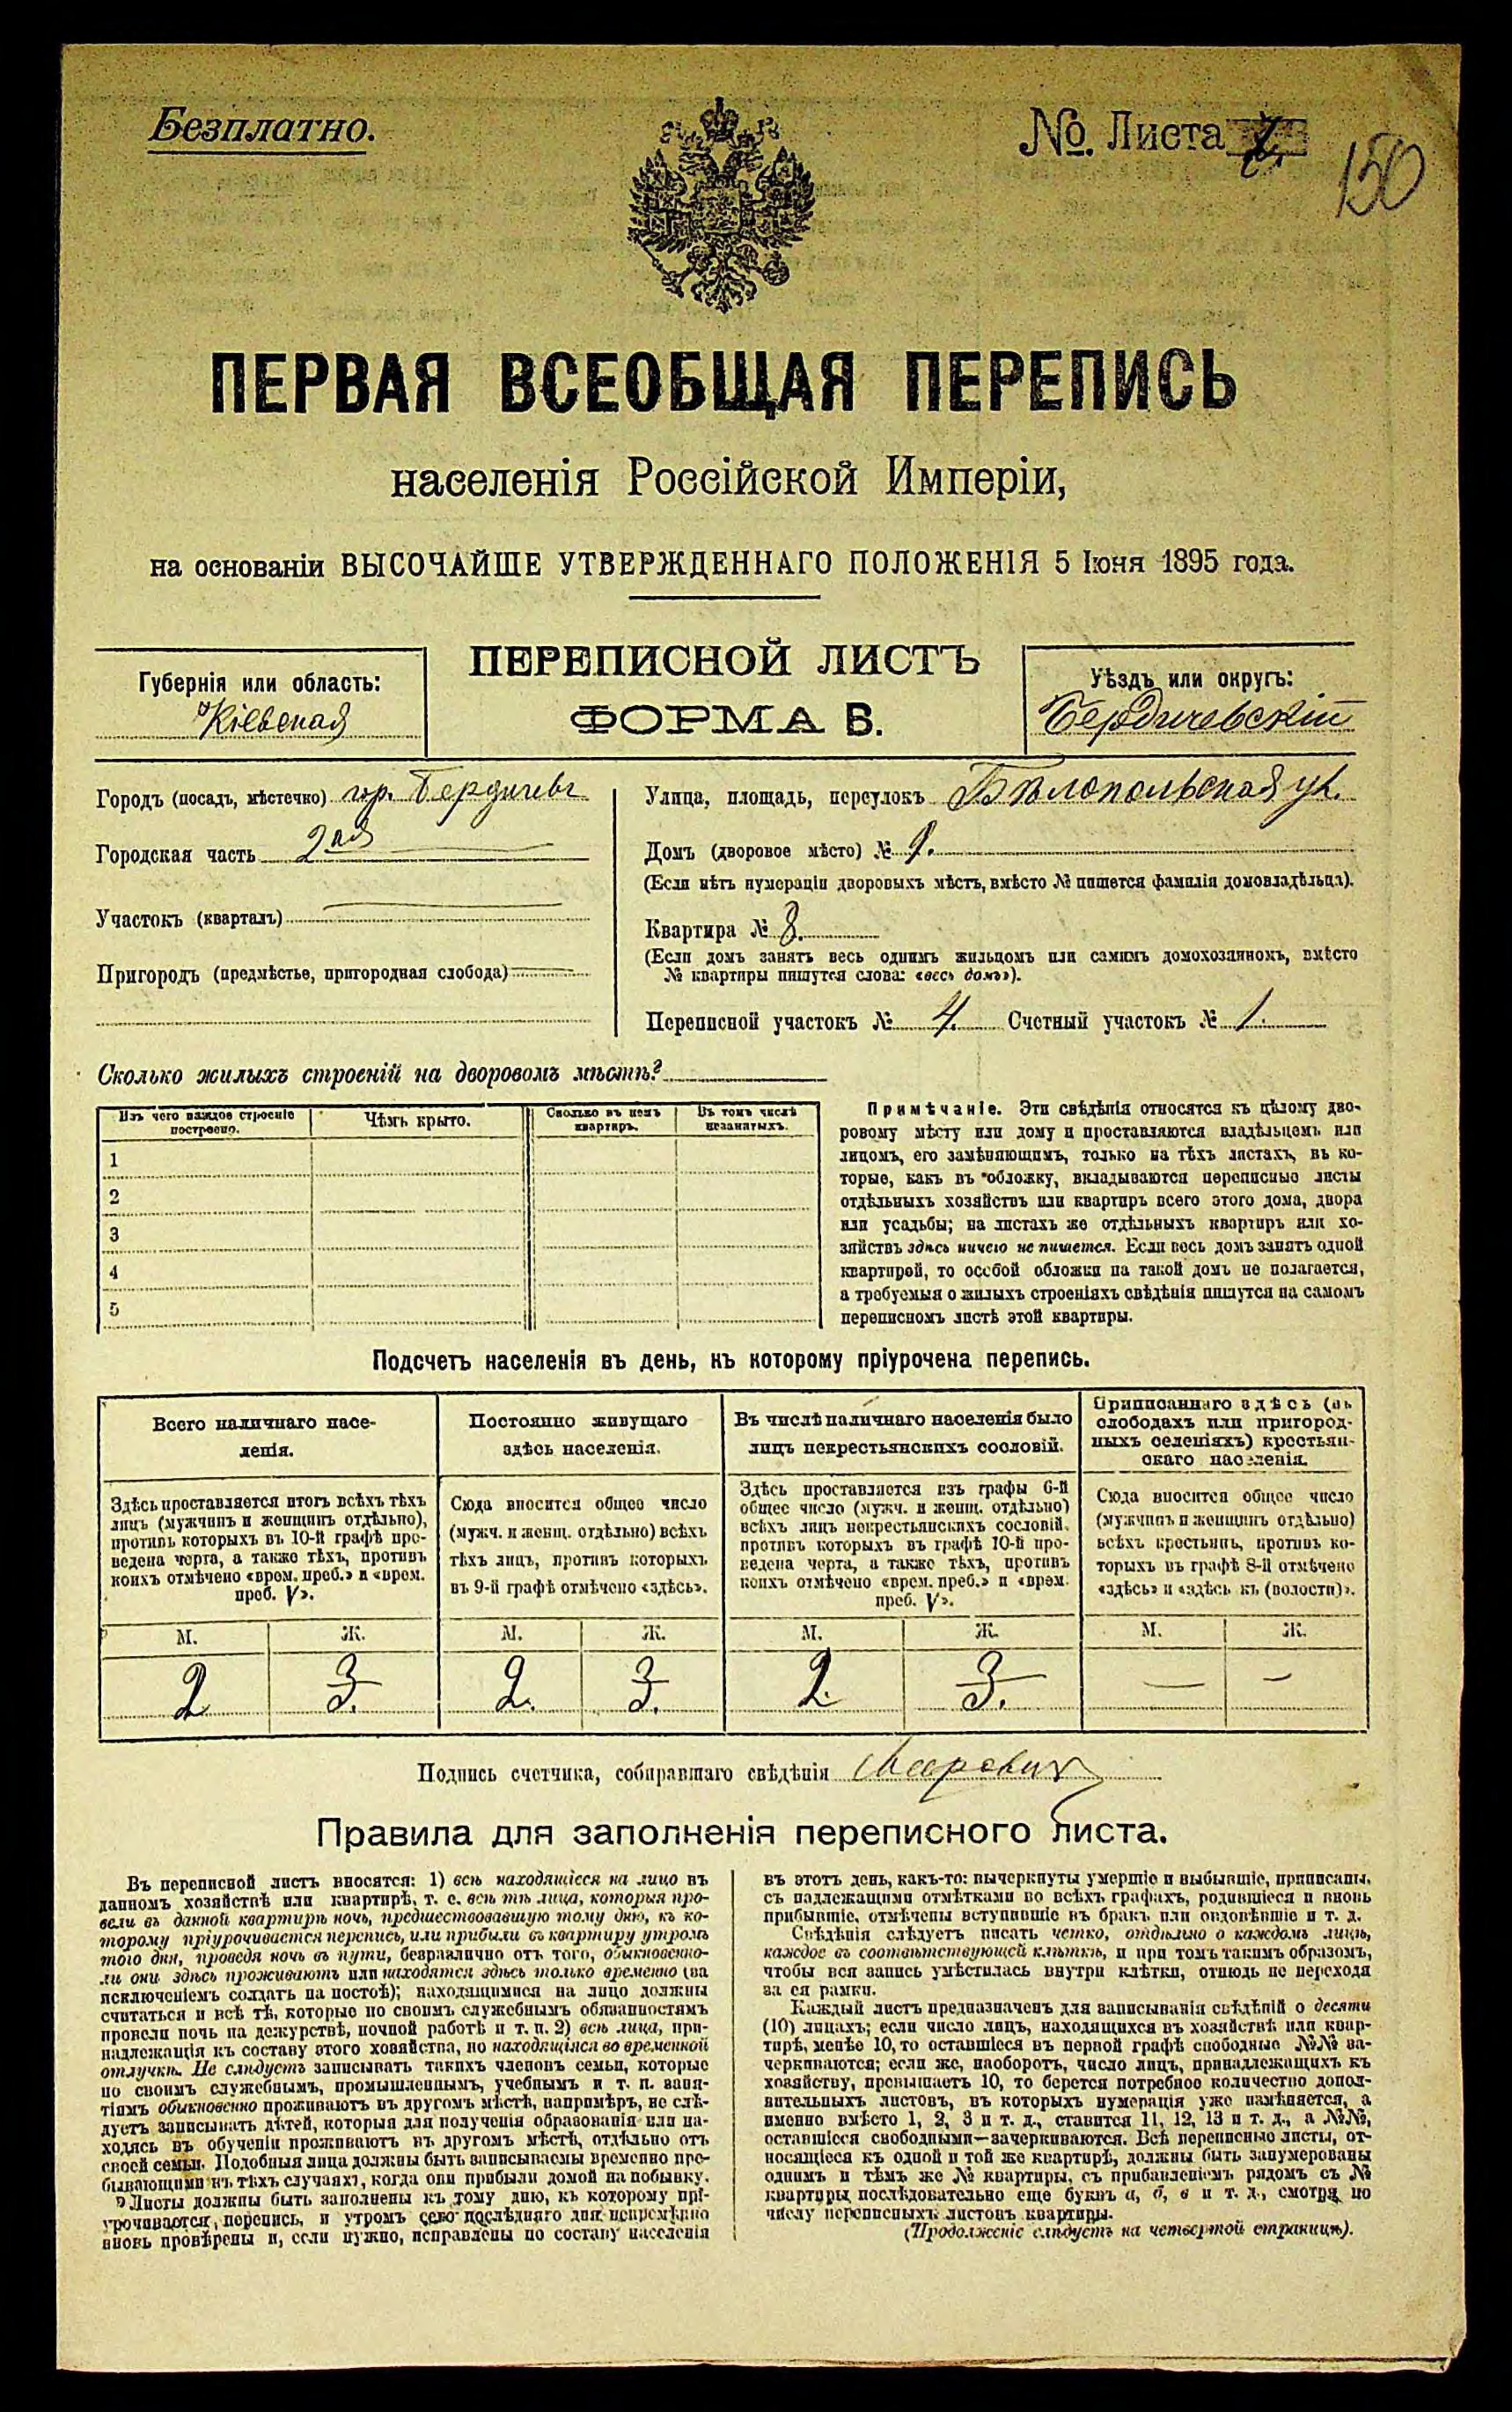 Безплатно.
№. Листа
150
ПЕРВАЯ ВСЕОБЩАЯ ПЕРЕПИСЬ
населенія Россійской Имперіи,
на основаніи ВЫСОЧАЙШЕ УТВЕРЖДЕННАГО ПОЛОЖЕНІЯ 5 Іюня 1895 года.
ПЕРЕПИСНОЙ ЛИСТЪ
ФОРМА Б.
Губернія или область:
Кіевская
Уѣздъ или округъ:
Бердичевскій
Городъ (посадъ, мѣстечко) гор. Бердичевъ
Городская часть 2ая
Участокъ (кварталъ)
Пригородъ (предмѣстье, пригородная слобода)
Улица, площадь, переулокъ Бѣлопольская ул.
Домъ (дворовое мѣсто) № 9.
(Если нѣтъ нумераціи дворовыхъ мѣстъ, вмѣсто № пишется фамилія домовладѣльца).
Квартира № 8.
(Если домъ занятъ весь однимъ жильцомъ или самимъ домохозяиномъ, вмѣсто
№ квартиры пишутся слова: «весь домъ»).
Переписной участокъ № 4. Счетный участокъ № 1.
Сколько жилыхъ строеній на дворовомъ мѣстѣ?
Изъ чего каждое строеніе
построено.
Чѣмъ крыто.
Сколько въ немъ
квартиръ.
Въ томъ числѣ
незанятыхъ.
1
2
3
4
5
Примѣчаніе. Эти свѣдѣнія относятся къ цѣлому дво-
ровому мѣсту или дому и проставляются владѣльцемъ или
лицомъ, его замѣняющимъ, только на тѣхъ листахъ, въ ко-
торые, какъ въ обложку, вкладываются переписные листы
отдѣльныхъ хозяйствъ или квартиръ всего этого дома, двора
или усадьбы; на листахъ же отдѣльныхъ квартиръ или хо-
зяйствъ здѣсь ничего не пишется. Если весь домъ занятъ одной
квартирой, то особой обложки на такой домъ не полагается,
а требуемыя о жилыхъ строеніяхъ свѣдѣнія пишутся на самомъ
переписномъ листѣ этой квартиры.
Подсчетъ населенія въ день, къ которому пріурочена перепись.
Всего наличнаго насе-
ленія.
Здѣсь проставляется итогъ всѣхъ тѣхъ
лицъ (мужчинъ и женщинъ отдѣльно),
противъ которыхъ въ 10-й графѣ про-
ведена черта, а также тѣхъ, противъ
коихъ отмѣчено «врем. преб.» и «врем.
преб. V».
М. Ж.
2 3.
Постоянно живущаго
здѣсь населенія.
Сюда вносится общее число
(мужч. и женщ. отдѣльно) всѣхъ
тѣхъ лицъ, противъ которыхъ
въ 9-й графѣ отмѣчено «здѣсь».
М. Ж.
2. 3.
Въ числѣ наличнаго населенія было
лицъ некрестьянскихъ сословій.
Здѣсь проставляется изъ графы 6-й
общее число (мужч. и женщ. отдѣльно)
всѣхъ лицъ некрестьянскихъ сословій,
противъ которыхъ въ графѣ 10-й про-
ведена черта, а также тѣхъ, противъ
коихъ отмѣчено «врем. преб.» и «врем.
преб. V».
М. Ж.
2. 3.
Приписаннаго здѣсь (въ
слободахъ или пригород-
ныхъ селеніяхъ) крестьян-
скаго населенія.
Сюда вносится общее число
(мужчинъ и женщинъ отдѣльно)
всѣхъ крестьянъ, противъ ко-
торыхъ въ графѣ 8-й отмѣчено
«здѣсь» и «здѣсь къ (волости)».
М. Ж.
— —
Подпись счетчика, собиравшаго свѣдѣнія
Правила для заполненія переписного листа.
Въ переписной листъ вносятся: 1) всѣ находящіеся на лицо въ
данномъ хозяйствѣ или квартирѣ, т. е. всѣ тѣ лица, которыя про-
вели въ данной квартирѣ ночь, предшествовавшую тому дню, къ ко-
торому пріурочивается перепись, или прибыли въ квартиру утромъ
того дня, проведя ночь въ пути, безразлично отъ того, обыкновенно-
ли они здѣсь проживаютъ или находятся здѣсь только временно (за
исключеніемъ солдатъ на постоѣ); находящимися на лицо должны
считаться и всѣ тѣ, которые по своимъ служебнымъ обязанностямъ
провели ночь на дежурствѣ, ночной работѣ и т. п. 2) всѣ лица, при-
надлежащія къ составу этого хозяйства, но находящіяся во временной
отлучкѣ. Не слѣдуетъ записывать такихъ членовъ семьи, которые
по своимъ служебнымъ, промышленнымъ, учебнымъ и т. п. заня-
тіямъ обыкновенно проживаютъ въ другомъ мѣстѣ, напримѣръ, не слѣ-
дуетъ записывать дѣтей, которыя для полученія образованія или на-
ходясь въ обученіи проживаютъ въ другомъ мѣстѣ, отдѣльно отъ
своей семьи. Подобныя лица должны быть записываемы временно пре-
бывающими въ тѣхъ случаяхъ, когда они прибыли домой на побывку.
Листы должны быть заполнены къ тому дню, къ которому прі-
урочивается перепись, и утромъ сего послѣдняго дня непремѣнно
вновь провѣрены и, если нужно, исправлены по составу населенія
въ этотъ день, какъ-то: вычеркнуты умершіе и выбывшіе, приписаны,
съ надлежащими отмѣтками во всѣхъ графахъ, родившіеся и вновь
прибывшіе, отмѣчены вступившіе въ бракъ или овдовѣвшіе и т. д.
Свѣдѣнія слѣдуетъ писать четко, отдѣльно о каждомъ лицѣ,
каждое въ соотвѣтствующей клѣткѣ, и при томъ такимъ образомъ,
чтобы вся запись умѣстилась внутри клѣтки, отнюдь не переходя
за ея рамки.
Каждый листъ предназначенъ для записыванія свѣдѣній о десяти
(10) лицахъ; если число лицъ, находящихся въ хозяйствѣ или квар-
тирѣ, менѣе 10, то оставшіеся въ первой графѣ свободные №№ за-
черкиваются; если же, наоборотъ, число лицъ, принадлежащихъ къ
хозяйству, превышаетъ 10, то берется потребное количество допол-
нительныхъ листовъ, въ которыхъ нумерація уже измѣняется, а
именно вмѣсто 1, 2, 3 и т. д., ставится 11, 12, 13 и т. д., а №№,
оставшіеся свободными—зачеркиваются. Всѣ переписные листы, от-
носящіеся къ одной и той же квартирѣ, должны быть занумерованы
однимъ и тѣмъ же № квартиры, съ прибавленіемъ рядомъ съ №
квартиры послѣдовательно еще буквъ а, б, в и т. д., смотря по
числу переписныхъ листовъ квартиры.
(Продолженіе слѣдуетъ на четвертой страницѣ).